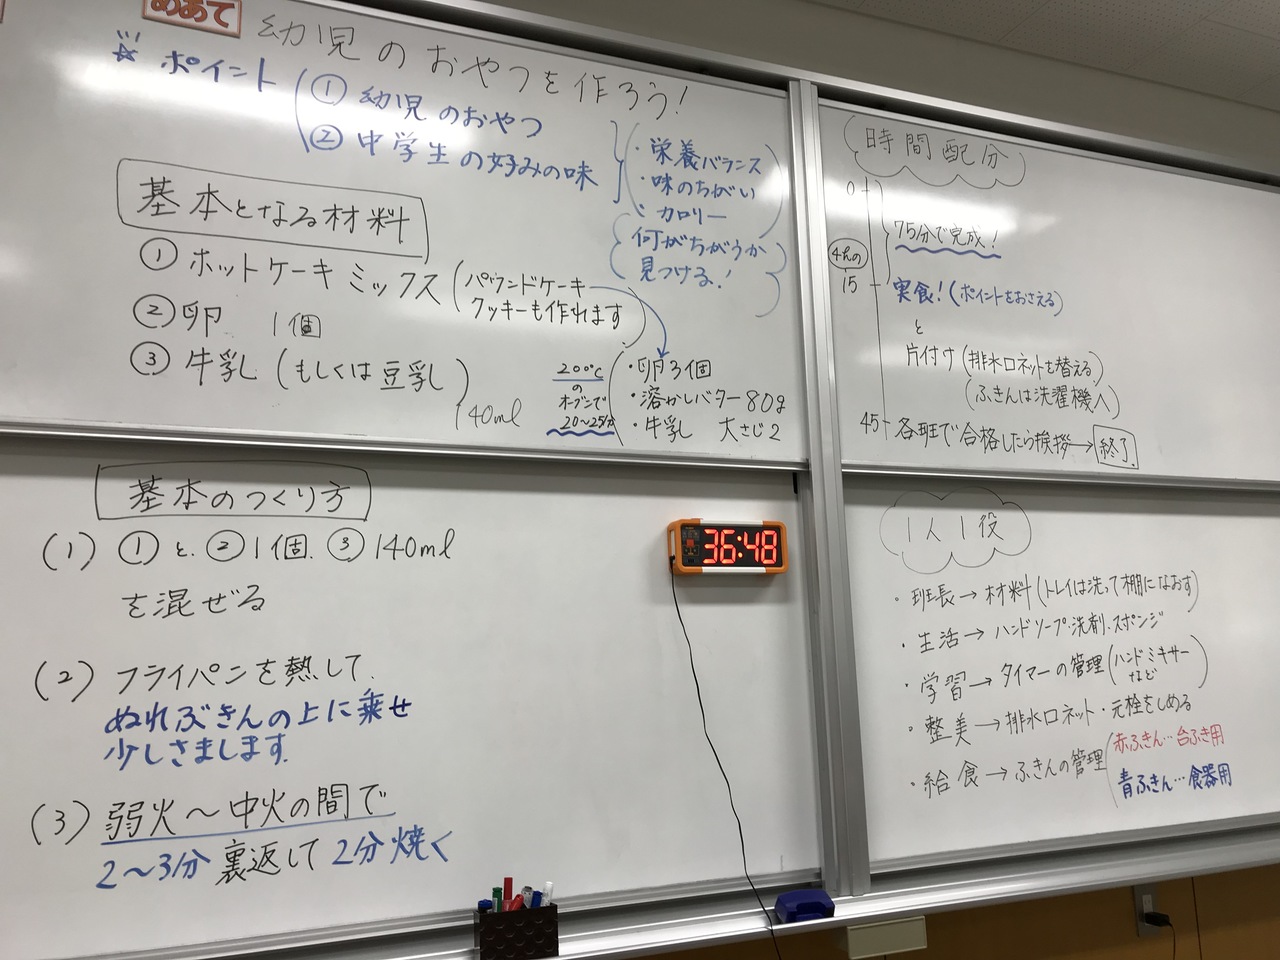 めあて
幼児のおやつを作ろう!
☆ ポイント
① 幼児のおやつ
② 中学生の好みの味
・栄養バランス
・味のちがい
・カロリー
何がちがうか
見つける!
基本となる材料
① ホットケーキミックス(パウンドケーキ
クッキーも作れます)
② 卵 1個
③ 牛乳(もしくは豆乳)
140ml
200℃
の
オーブンで
20〜25分
・卵3個
・溶かしバター80g
・牛乳 大さじ2
基本のつくり方
(1) ①と.②1個.③140ml
を混ぜる
(2) フライパンを熱して.
ぬれぶきんの上に乗せ
少しさまします.
(3) 弱火〜中火の間で
2〜3分 裏返して 2分焼く
36:48
時間配分
0
75分で完成!
4h.の
15
実食!(ポイントをおさえる)
と
片付け(排水口ネットを替える)
(ふきんは洗濯機へ)
45 各班で合格したら挨拶→終了.
1人1役
・班長→材料(トレイは洗って棚になおす)
・生活→ハンドソープ.洗剤.スポンジ
・学習→タイマーの管理(ハンドミキサー
など)
・整美→排水口ネット・元栓をしめる
・給食→ふきんの管理
赤ふきん…台ふき用
青ふきん…食器用